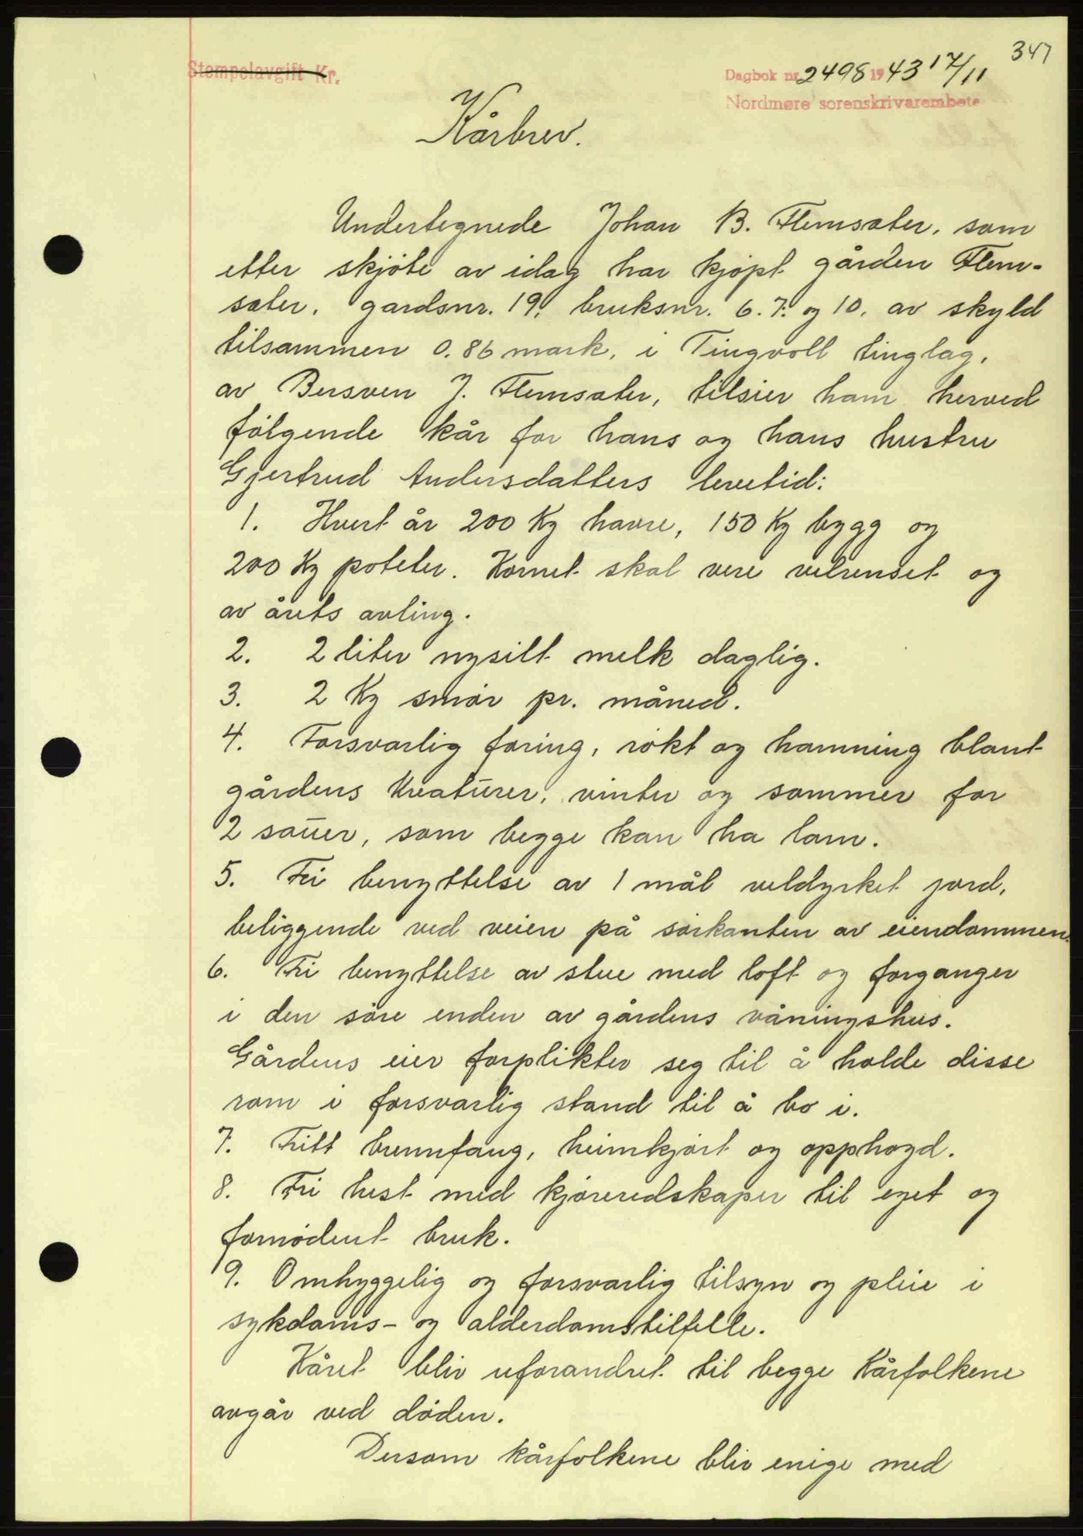 347
Stempelavgift Kr.
Dagbok nr. 2498 1943 17/11
Nordmøre sorenskrivarembete
Kårbrev.
Undertegnede Johan B. Flemsæter, som
etter skjöte av idag har kjöpt gården Flem-
sæter, gardsnr. 19, bruksnr. 6. 7. og 10. av skyld
tilsammen 0.86 mark, i Tingvoll tinglag,
av Bersven J. Flemsæter, tilsier ham herved
fölgende kår for hans og hans hustru
Gjertrud Andersdatters levetid:
1. Hvert år 200 Kg havre, 150 Kg bygg og
200 Kg poteter. Kornet skal være velrenset og
av årets avling.
2. 2 liter nysilt melk daglig.
3. 2 Kg smör pr. måned.
4. Forsvarlig foring, rökt og hamning blant
gårdens kreaturer, vinter og sommer for
2 sauer, som begge kan ha lam.
5. Fri benyttelse av 1 mål veldyrket jord,
beliggende ved veien på sörkanten av eiendommen.
6. Fri benyttelse av stue med loft og forganger
i den söre enden av gårdens våningshus.
Gårdens eier forplikter seg til å holde disse
rom i forsvarlig stand til å bo i.
7. Fritt brennfang, heimkjört og opphogd.
8. Fri hest med kjöreredskaper til eget og
fornödent bruk.
9. Omhyggelig og forsvarlig tilsyn og pleie i
sykdoms- og alderdomstilfelle.
Kåret blir uforandret til begge kårfolkene
avgår ved döden.
Dersom kårfolkene blir enige med